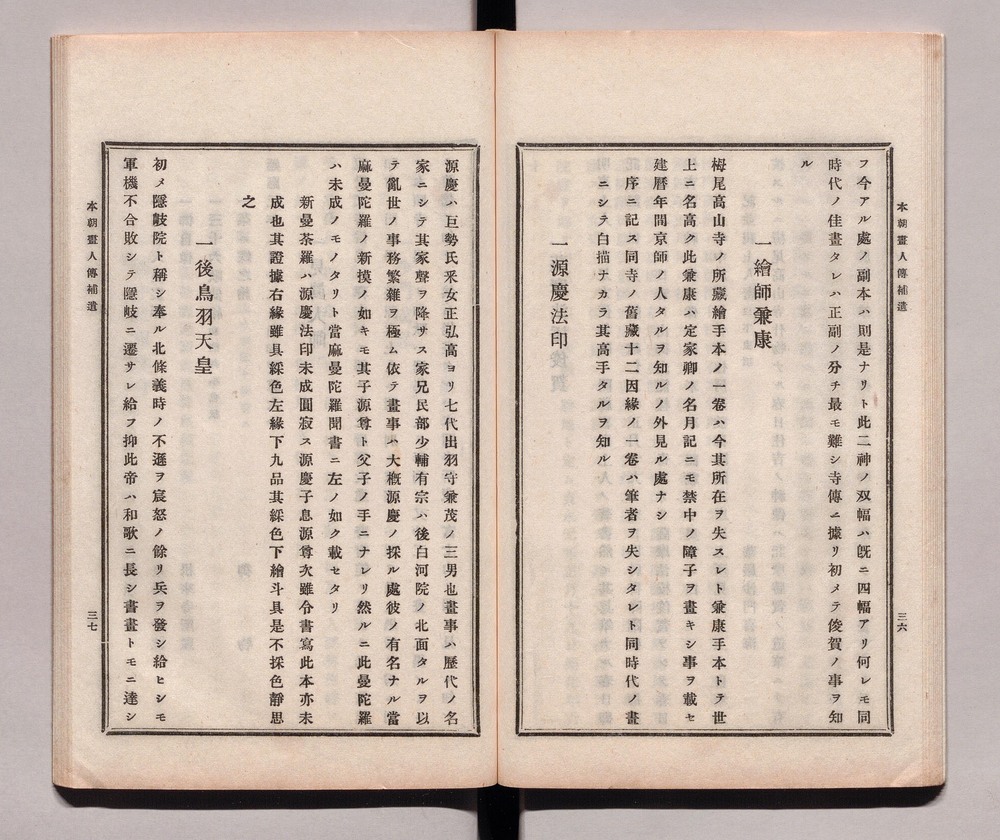 本朝畫人傳補遺
三六
フ今アル處ノ副本ハ則是ナリト此二神ノ双幅ハ旣ニ四幅アリ何レモ同
時代ノ佳畫タレハ正副ノ分チ最モ難シ寺傳ニ據リ初メテ俊賀ノ事ヲ知
ル
一繪師兼康
栂尾高山寺ノ所藏繪手本ノ一卷ハ今其所在ヲ失スレト兼康手本トテ世
上ニ名高ク此兼康ハ定家卿ノ名月記ニモ禁中ノ障子ヲ畫キシ事ヲ載セ
建曆年間京師ノ人タルヲ知ルノ外見ル處ナシ
序ニ記ス同寺ノ舊藏十二因緣ノ一卷ハ筆者ヲ失シタレト同時代ノ畫
ニシテ白描ナカラ其高手タルヲ知ル
一源慶法印
源慶ハ巨勢氏釆女正弘高ヨリ七代出羽守兼茂ノ三男也畫事ハ歷代ノ名
家ニシテ其家聲ヲ降サス家兄民部少輔有宗ハ後白河院ノ北面タルヲ以
テ亂世ノ事務繁雜ヲ極ム依テ畫事ハ大槪源慶ノ採ル處彼ノ有名ナル當
麻曼陀羅ノ新摸ノ如キモ其子源尊ト父子ノ手ニナレリ然ルニ此曼陀羅
ハ未成ノモノタリト當麻曼陀羅聞書ニ左ノ如ク載セタリ
新曼荼羅ハ源慶法印未成圓寂ス源慶子息源尊次雖令書寫此本亦未
成也其證據右緣雖具綵色左緣下九品其綵色下繪斗具是不採色靜思
之
一後鳥羽天皇
初メ隱歧院ト稱シ奉ル北條義時ノ不遜ヲ宸怒ノ餘リ兵ヲ發シ給ヒシモ
軍機不合敗シテ隱岐ニ遷サレ給フ抑此帝ハ和歌ニ長シ書畫トモニ達シ
本朝畫人傳補遺
三七